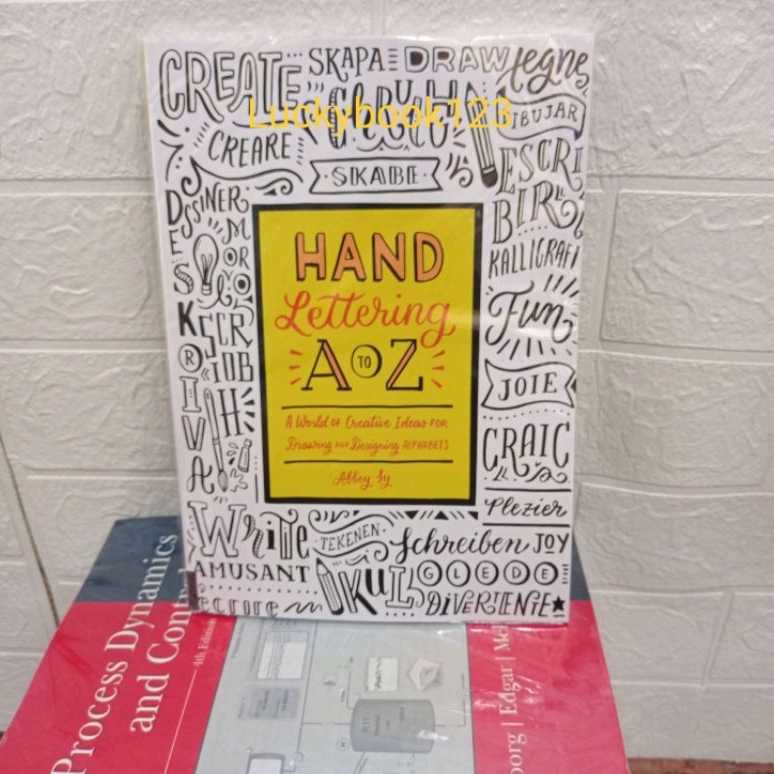 CREATE
SKAPA
DRAW
Luckybook123
CREARE
SKABE
ESCRI
BIR
DESSINER
KALLIGRAFI
HAND
Lettering
A TO Z
A World OF Creative Ideas FOR
Drawing AND Designing ALPHABETS
Abbey Sy
Fun
JOIE
CRAIC
Plezier
Write
TEKENEN
Schreiben
JOY
AMUSANT
KUL
GLEDE
DiVERTENTE
Process Dynamics
and Control
4th Edition
borg | Edgar | Mel